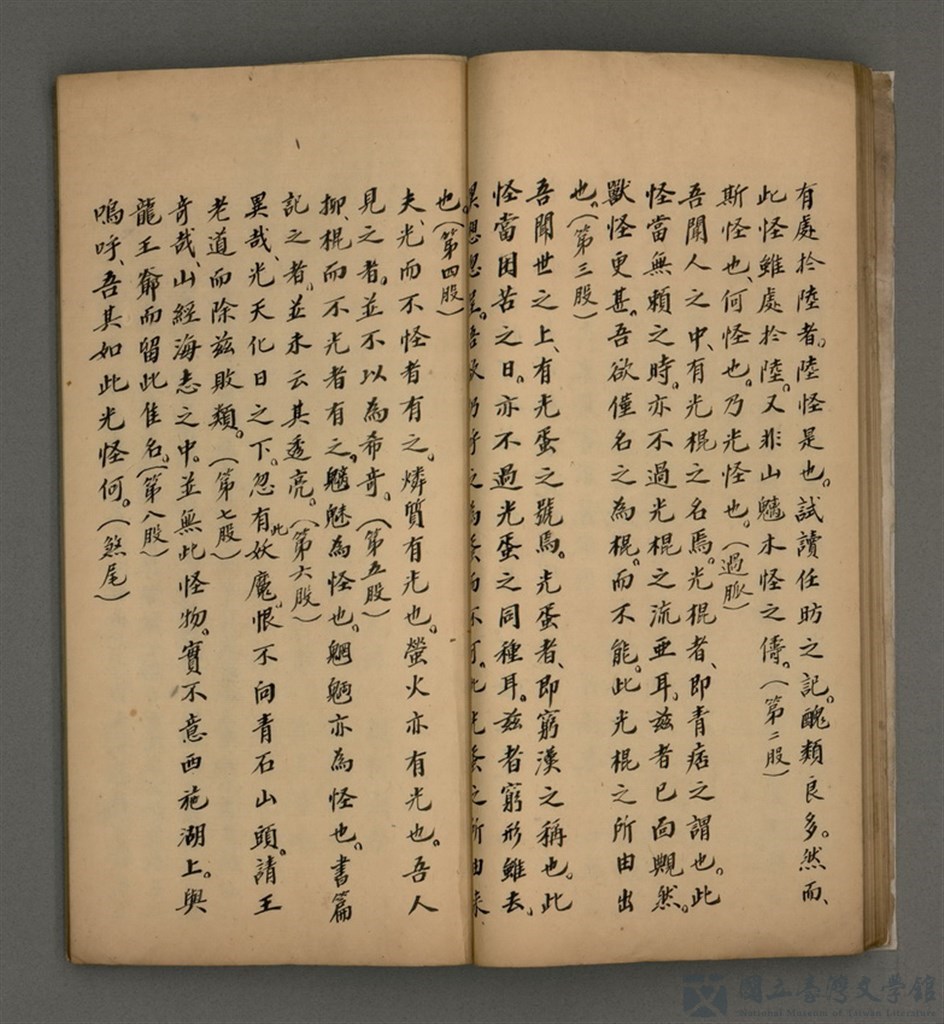 有處於陸者。陸怪是也。試讀任昉之記。醜類良多。然而、
此怪雖處於陸。又非山魑木怪之儔。(第二股)
斯怪也、何怪也。乃光怪也。(過脈)
吾聞人之中、有光棍之名焉。光棍者、即青痞之謂也。此
怪當無賴之時。亦不過光棍之流亜耳。茲者已面覥然。
獸怪更甚。吾欲僅名之為棍。而不能。此光棍之所由出
也。(第三股)
吾聞世之上、有光蛋之號焉。光蛋者、即窮漢之稱也。此
怪當困苦之日。亦不過光蛋之同種耳。茲者窮形雖去、
之為蛋而不可。此光蛋之所由来
也。(第四股)
夫、光而不怪者有之。燐質有光也。螢火亦有光也。吾人
見之者。並不以為希奇。(第五股)
抑、棍而不光者有之。魑魅為怪也。魍魎亦為怪也。書篇
記之者。並未云其透亮。(第六股)
異哉、光天化日之下。忽有此妖魔。恨不向青石山頭。請王
老道而除茲敗類。(第七股)
奇哉、山經海志之中。並無此怪物。實不意西施湖上。與
龍王爺而留此佳名。(第八股)
嗚呼、吾其如此光怪何。(煞尾)
國立臺灣文學館
National Museum of Taiwan Literature